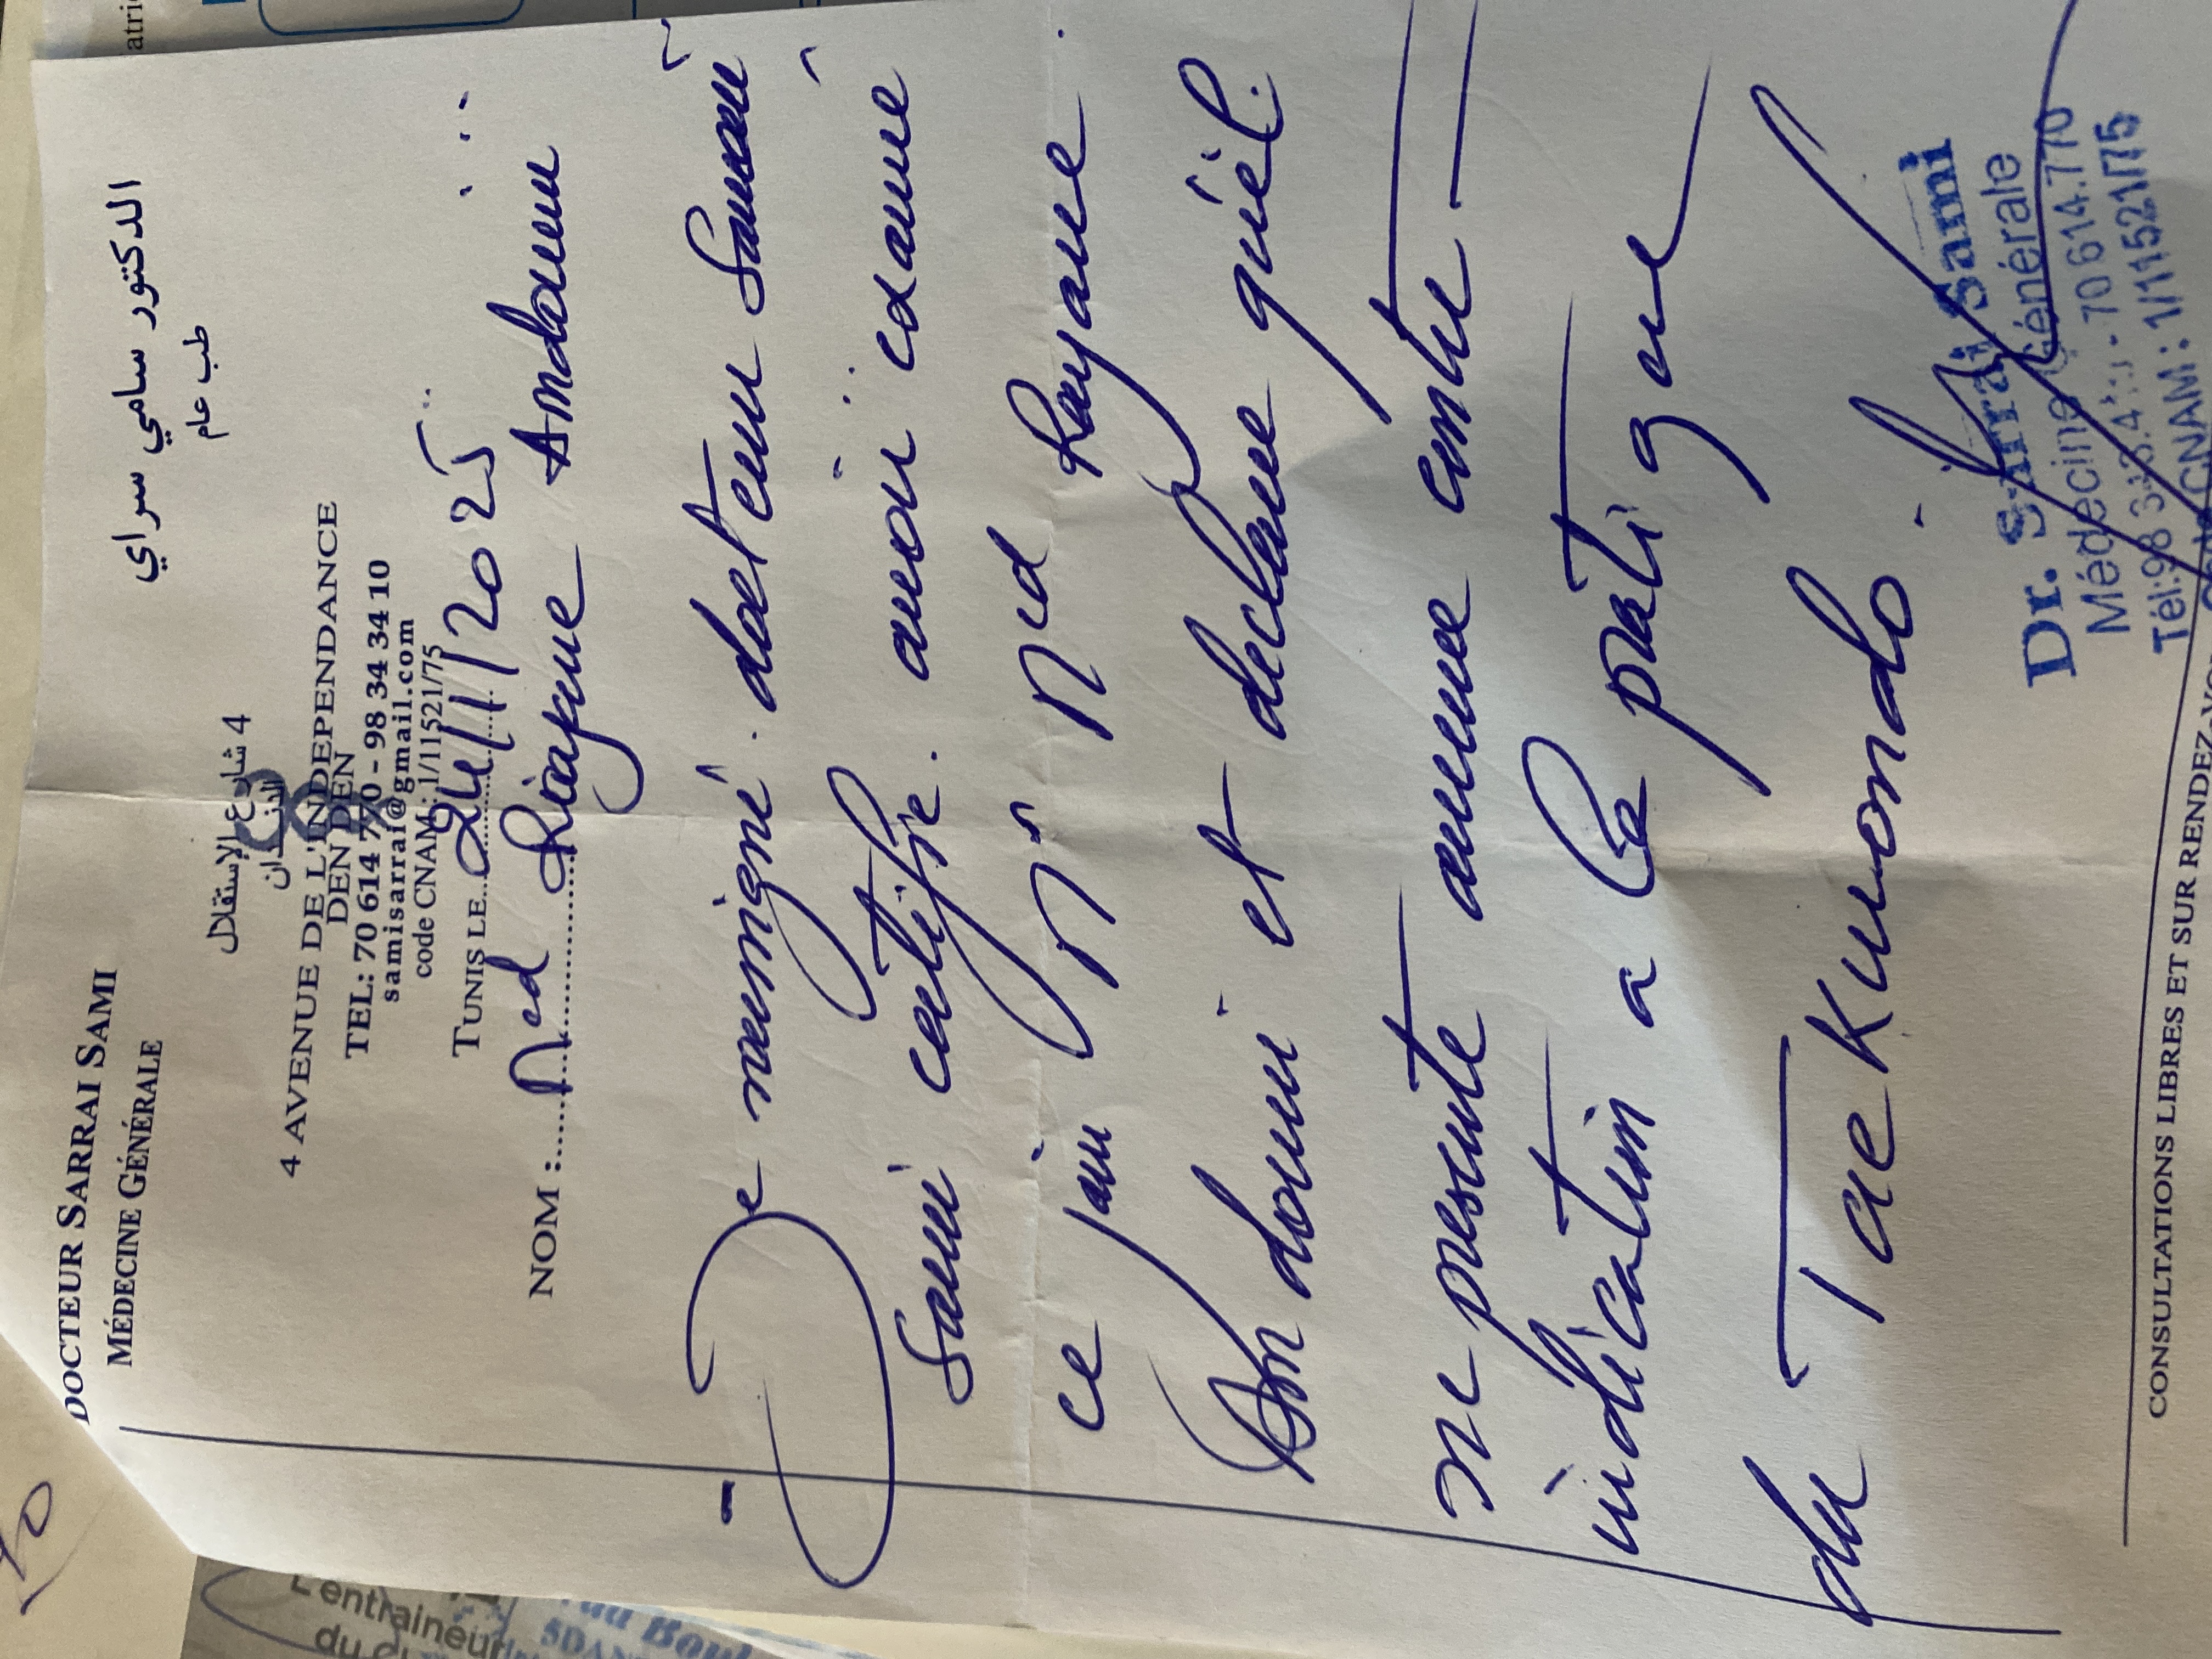 DOCTEUR SARRAI SAMI
MÉDECINE GÉNÉRALE
الدكتور سامي سراي
طب عام
4 شارع الإستقلال
4 AVENUE DE L'INDEPENDANCE
DEN DEN
TEL: 70 614 770 - 98 34 34 10
samisarrai@gmail.com
code CNAM: 1/11521/75
TUNIS LE 2025
NOM : Med Rayane Amdouni
Je soussigné docteur
Sami certifie avoir examiné
ce jour Mr Med Rayane
Amdouni et déclare qu'il
ne presente aucune contre
indication a la pratique
du Taekwondo
Dr. Sarrai Sami
Médecine Générale
70 614.770
CNAM: 1/11521/75
CONSULTATIONS LIBRES ET SUR RENDEZ-VO
L'entraineur